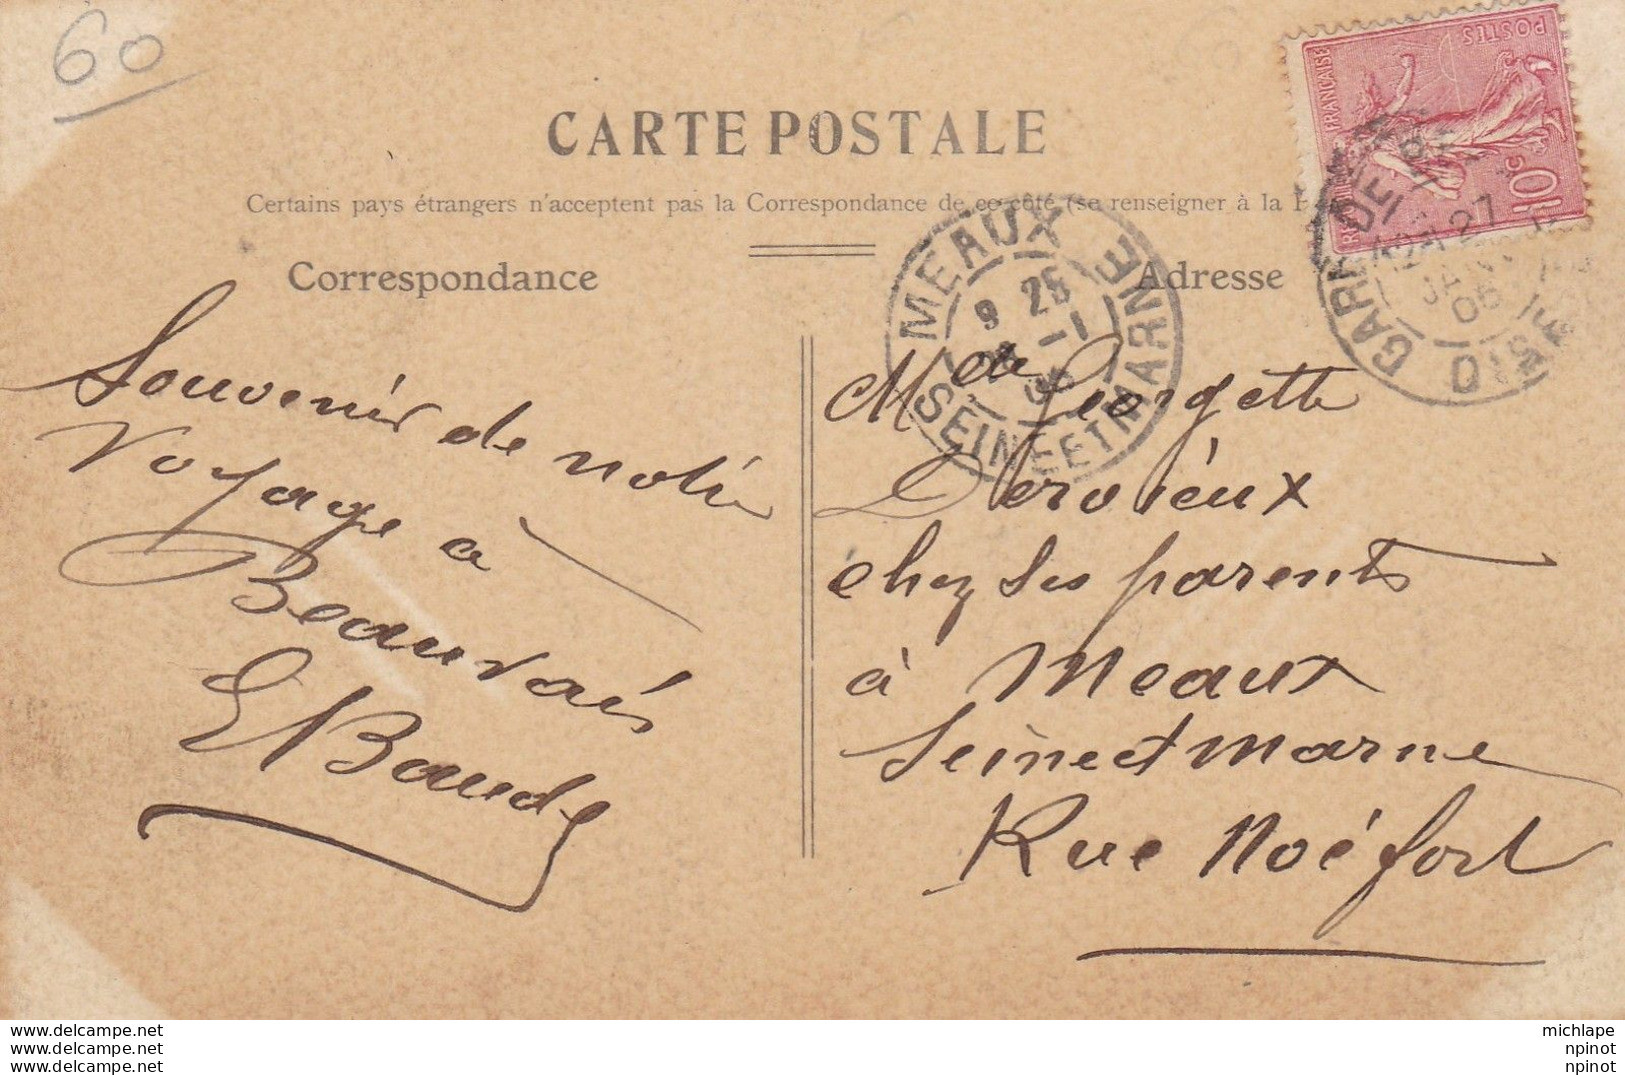 60
CARTE POSTALE
Certains pays étrangers n'acceptent pas la Correspondance de ce côté (se renseigner à la
Correspondance
Adresse
POSTES
FRANÇAISE
10c
MEAUX
9 25
-1
SEINE ET MARNE
GARE DE
27
JANV
06
OISE
Souvenir de notre
Voyage à
Beauvais
E Baude
Mde Georgette
Dervieux
chez ses parents
à Meaux
Seine et Marne
Rue Noéfort
www.delcampe.net
www.delcampe.net
www.delcampe.net
michlape
npinot
npinot